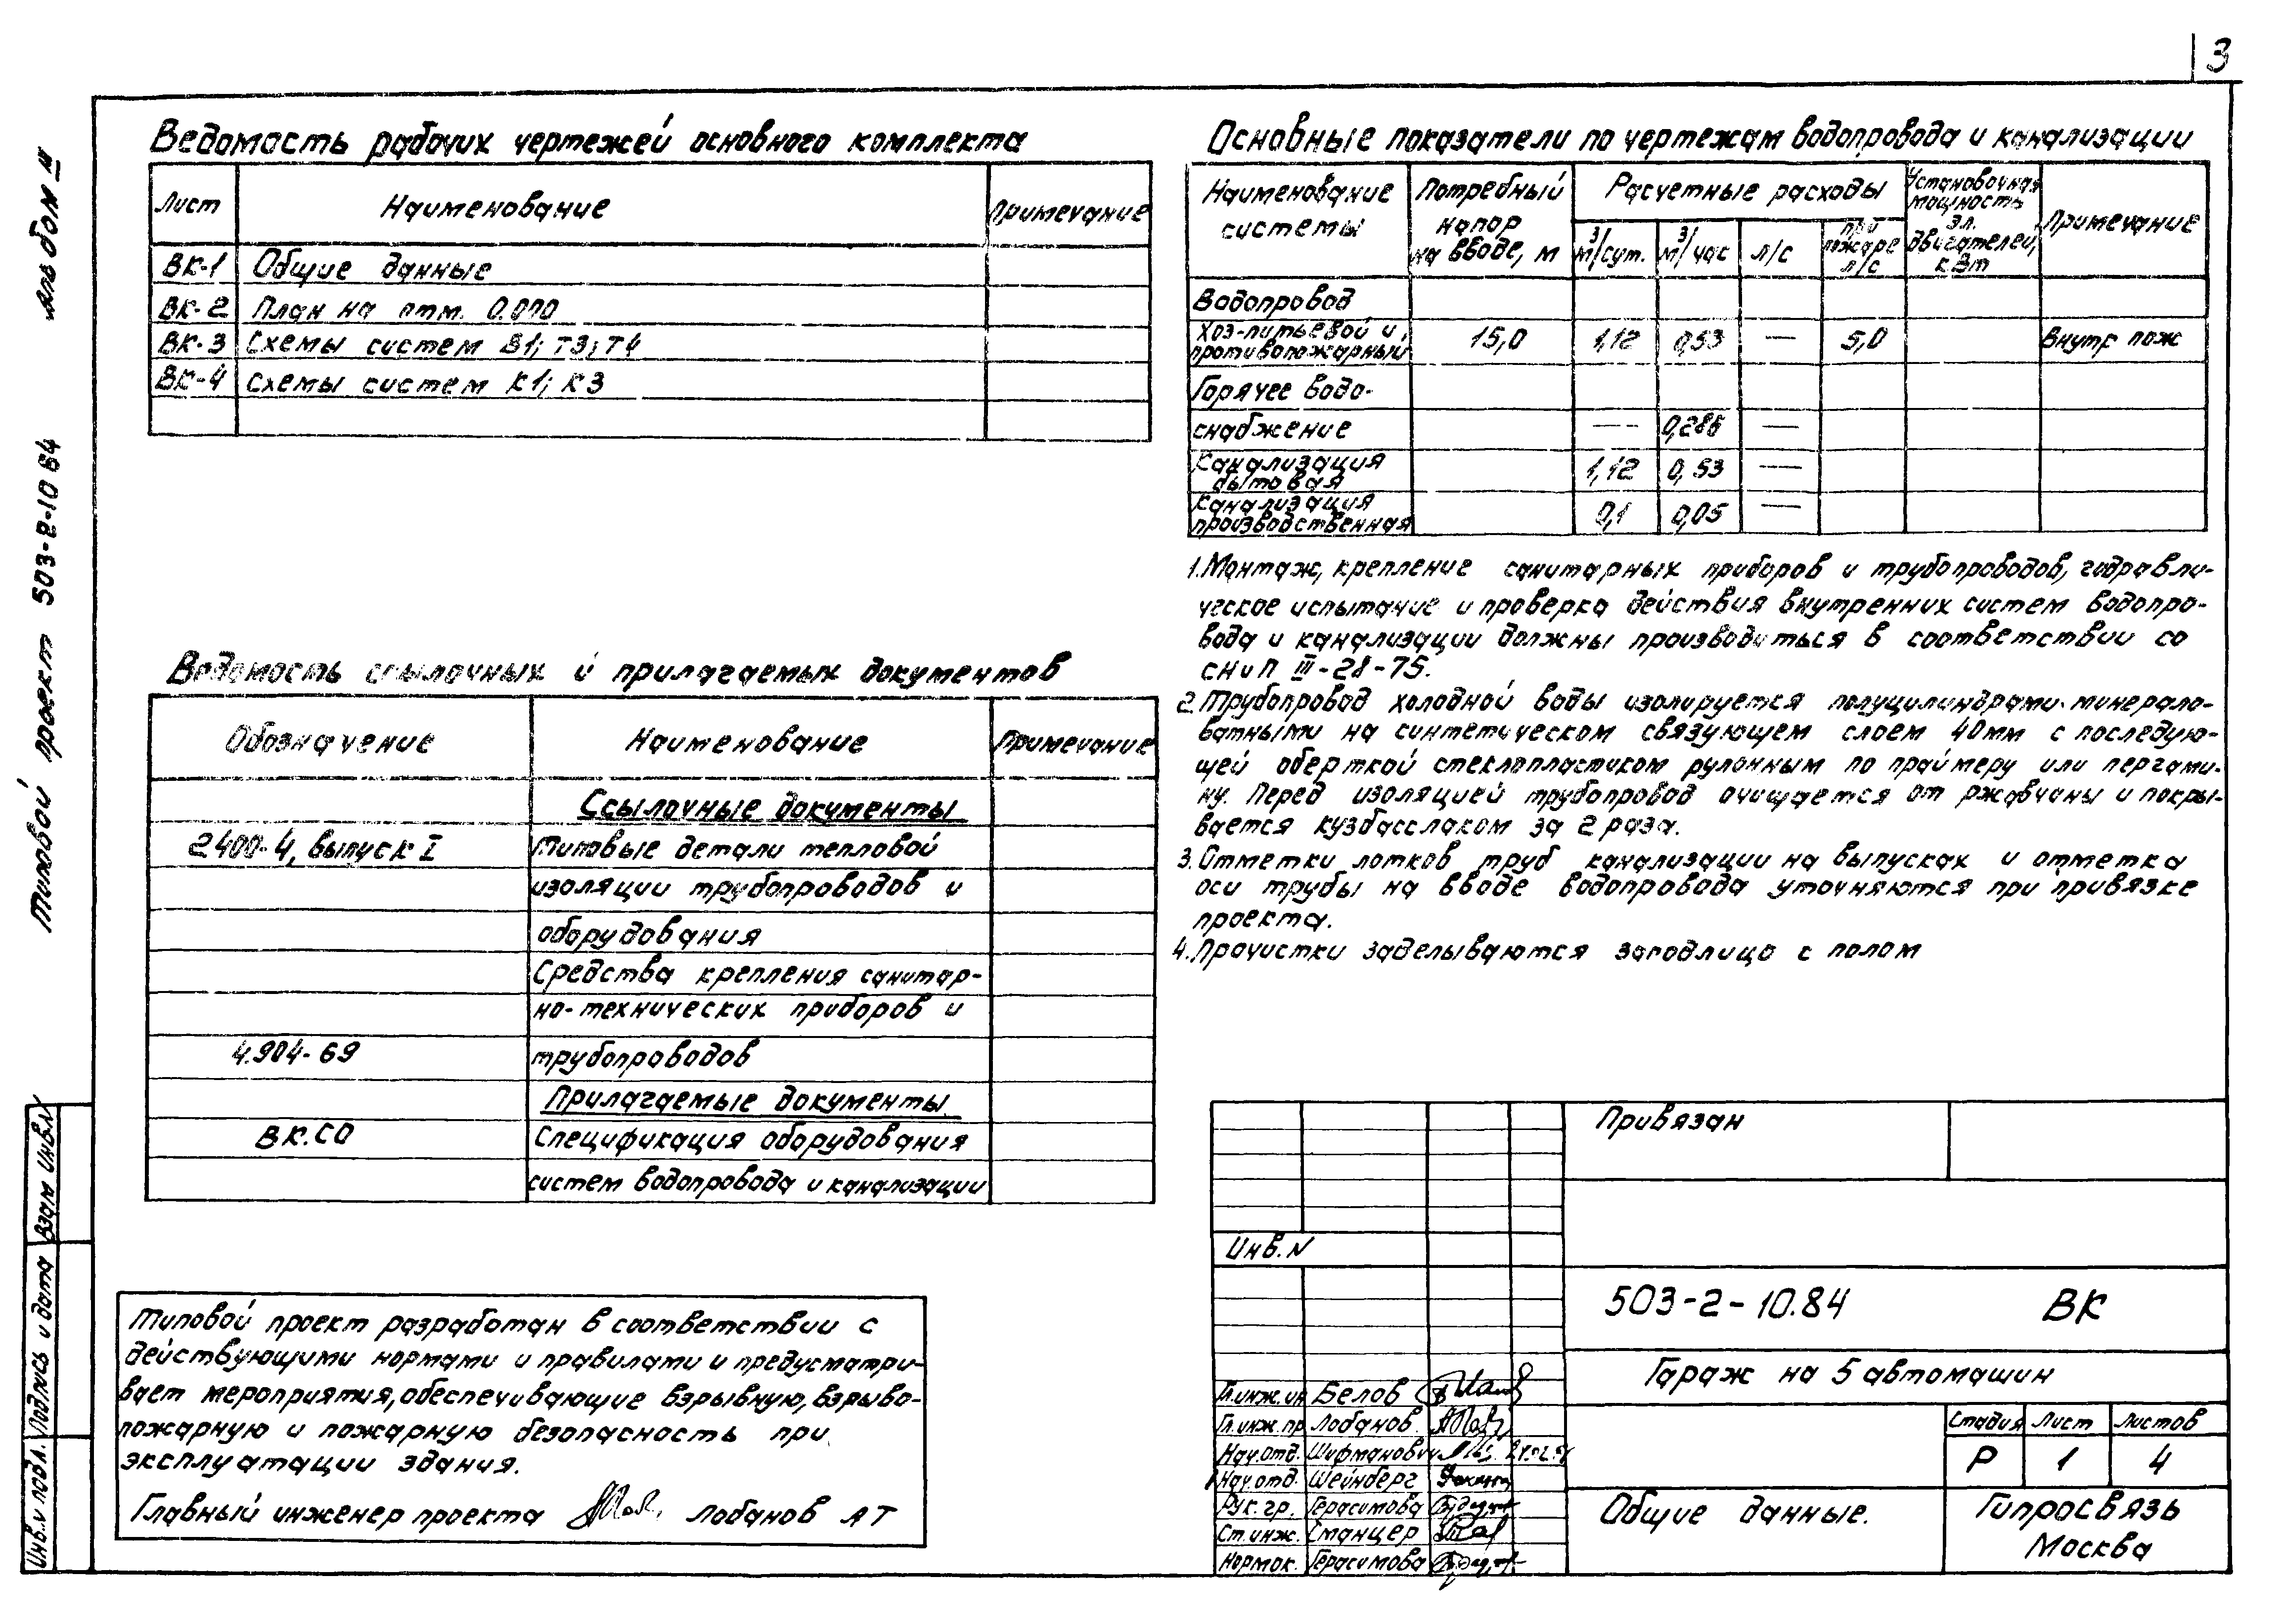 3
Альбом III
Типовой проект 503-2-10 84
Ведомость рабочих чертежей основного комплекта
Лист Наименование Примечание
ВК-1 Общие данные
ВК-2 План на отм. 0.000
ВК-3 Схемы систем В1; Т3; Т4
ВК-4 Схемы систем К1; К3
Ведомость ссылочных и прилагаемых документов
Обозначение Наименование Примечание
Ссылочные документы
2400-4, выпуск I Типовые детали тепловой
изоляции трубопроводов и
оборудования
Средства крепления санитар-
но-технических приборов и
4.904-69 трубопроводов
Прилагаемые документы.
ВК.СО Спецификация оборудования
систем водопровода и канализации
Типовой проект разработан в соответствии с
действующими нормами и правилами и предусматри-
вает мероприятия, обеспечивающие взрывную, взрыво-
пожарную и пожарную безопасность при
эксплуатации здания.
Главный инженер проекта Лобанов А Т
Основные показатели по чертежам водопровода и канализации
Наименование системы Потребный напор на вводе, м Расчетные расходы Установочная мощность эл. двигателей, кВт Примечание
м³/сут. м³/час л/с при пожаре л/с
Водопровод
Хоз-питьевой и
противопожарный 15,0 1,12 0,53 — 5,0 Внутр пож
Горячее водо-
снабжение — 0,286 —
Канализация
бытовая 1,12 0,53 —
Канализация
производственная 0,1 0,05 —
1. Монтаж, крепление санитарных приборов и трубопроводов, гидравли-
ческое испытание и проверка действия внутренних систем водопро-
вода и канализации должны производиться в соответствии со
СНиП III-28-75.
2. Трубопровод холодной воды изолируется полуцилиндрами минерало-
ватными на синтетическом связующем слоем 40мм с последую-
щей оберткой стеклопластиком рулонным по праймеру или пергами-
ну. Перед изоляцией трубопровод очищается от ржавчины и покры-
вается кузбасслаком за 2 раза.
3. Отметки лотков труб канализации на выпусках и отметка
оси трубы на вводе водопровода уточняются при привязке
проекта.
4. Прочистки заделываются заподлицо с полом
Привязан
Инв. N
503-2-10.84 ВК
Гараж на 5 автомашин
Гл.инж.ин Белов
Гл.инж.пр Лобанов.
Нач.отд. Шифманович
Нач.отд. Шейнберг
Рук. гр. Герасимова
Ст.инж. Станцер
Нормок. Герасимова
Стадия Лист Листов
Р 1 4
Общие данные.
Гипросвязь
Москва
Инв.N подл. Подпись и дата Взам Инв.N